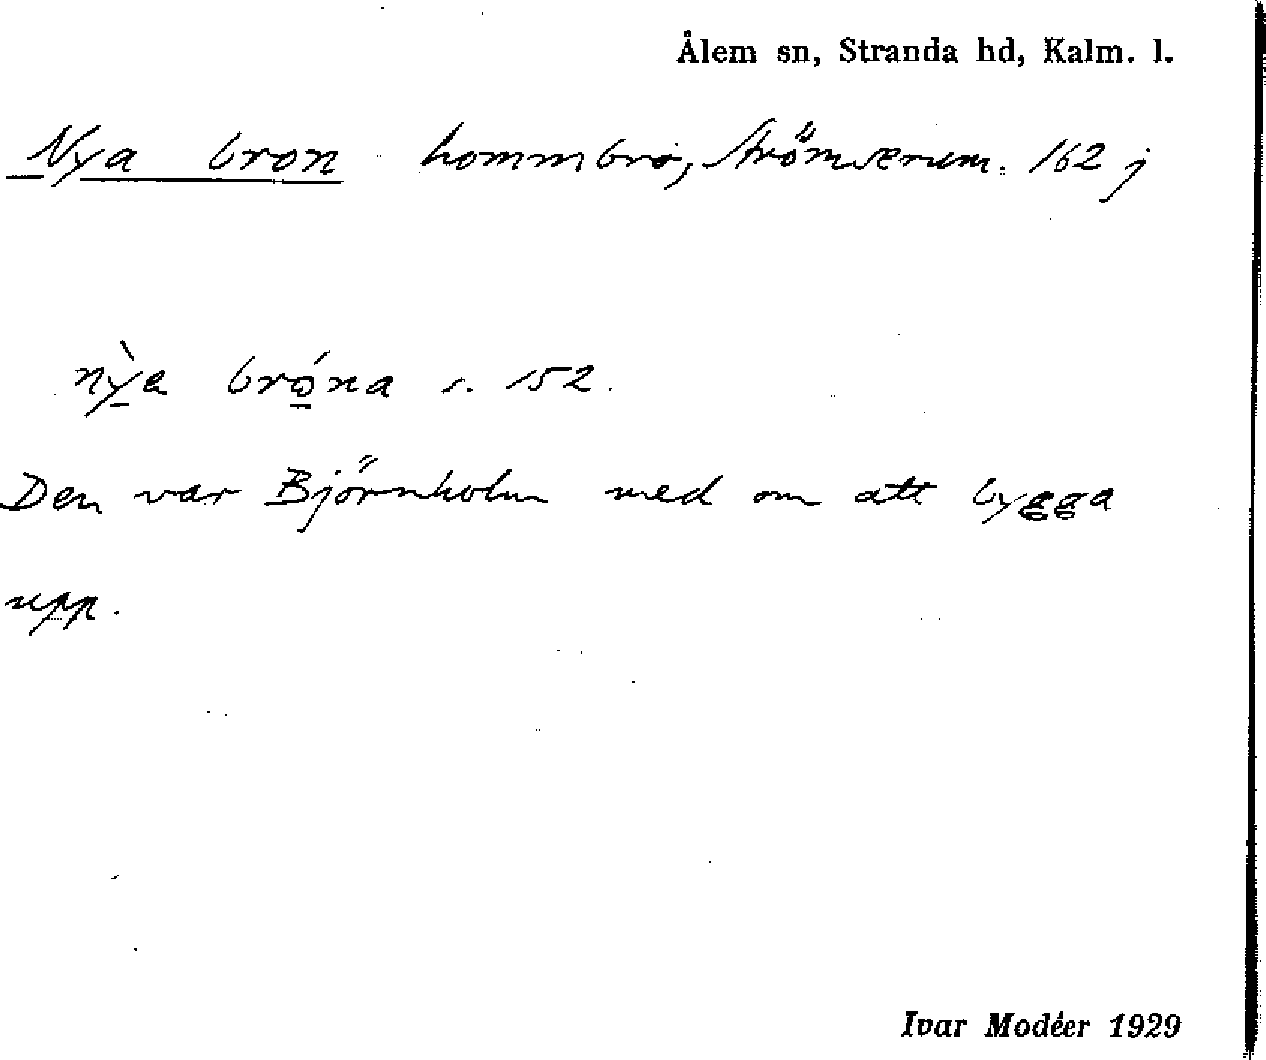 Ålem sn, Stranda hd, Kalm. l.
Nya bron hommbro, Strömserum. 162 j
nỳa bróna s. 152.
Den var Björnholm med om att bygga
upp.
Ivar Modéer 1929